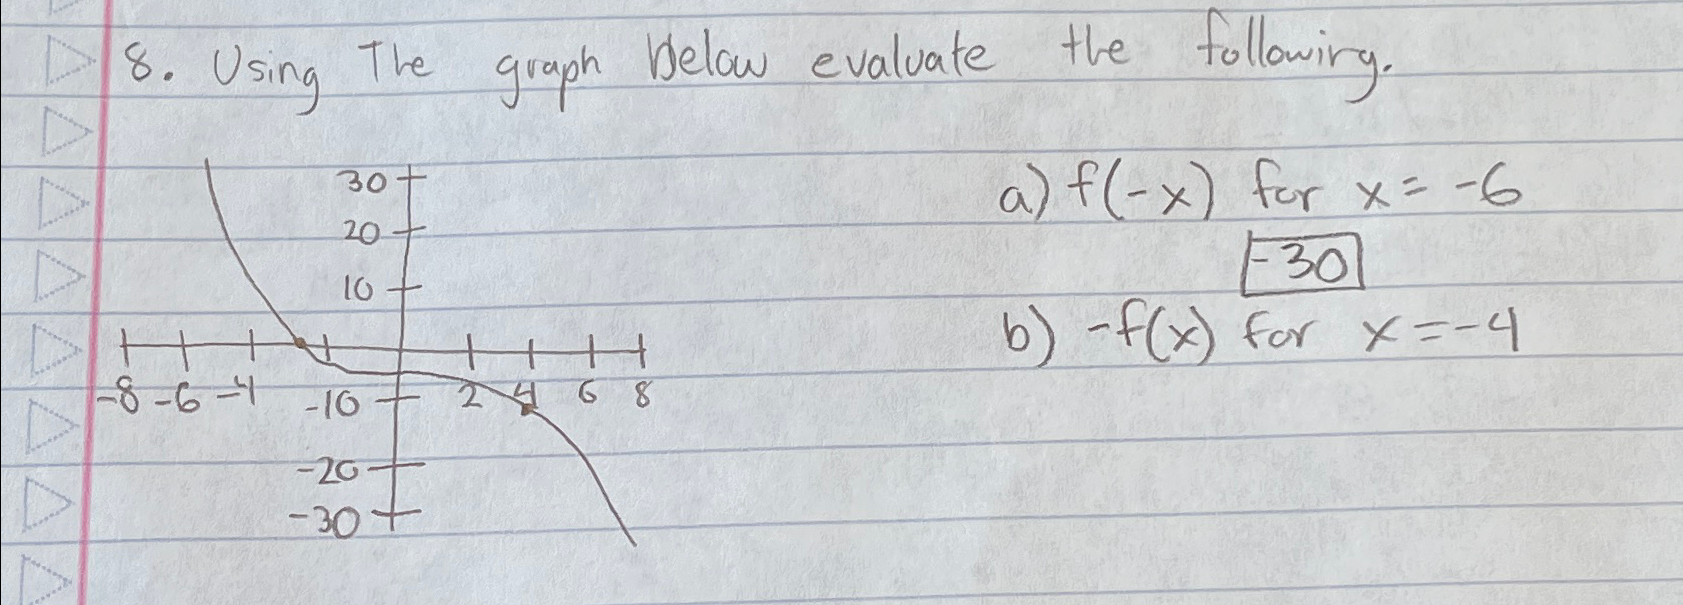 8. Using The graph below evaluate the following.
30
20
10
-8 -6 -4 -10 2 4 6 8
-20
-30
a) f(-x) for x = -6
-30
b) -f(x) for x = -4